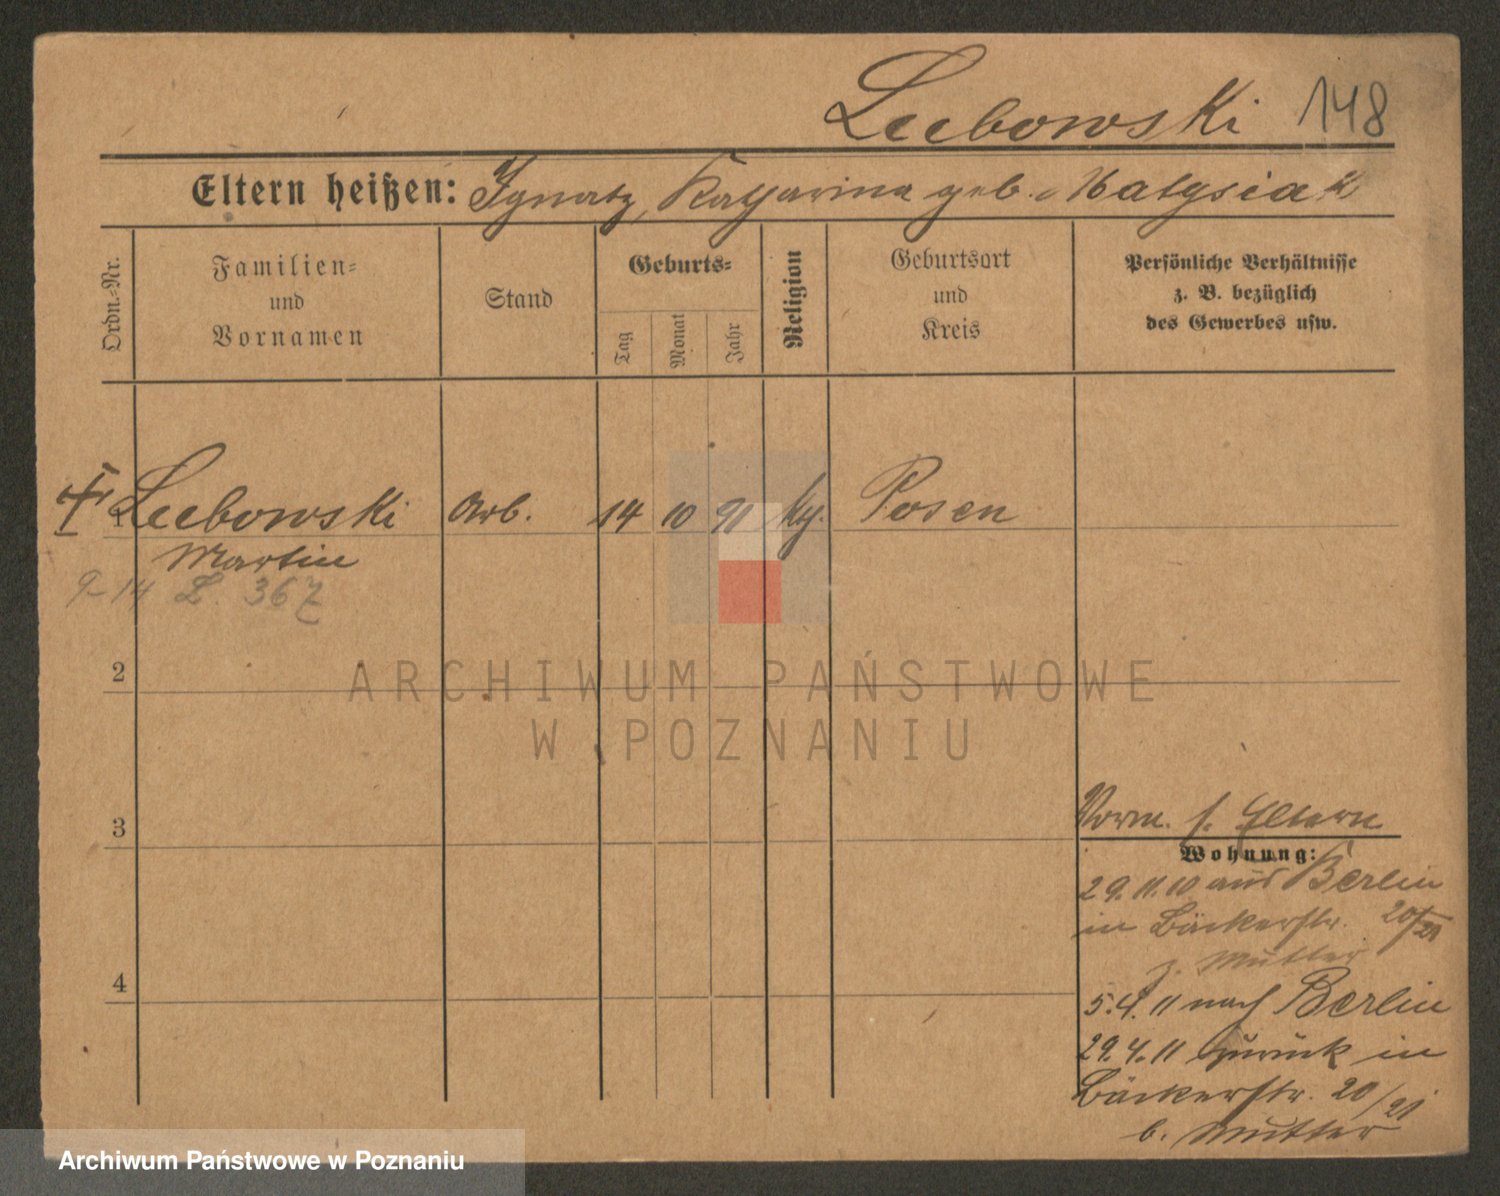 Lubowski 148
Eltern heißen: Ignatz, Katharina geb. Matysiak
Ordn.-Nr.
Familien-
und
Vornamen
Stand
Geburts-
Tag
Monat
Jahr
Religion
Geburtsort
und
Kreis
Persönliche Verhältnisse
z. B. bezüglich
des Gewerbes usw.
1 Lubowski Arb. 14 10 91 Posen
Martin
14 L. 367
2
ARCHIWUM PAŃSTWOWE
W POZNANIU
3
Vorm. s. Eltern
Wohnung:
29.11.10 aus Berlin
in Bäckerstr. 20/21
z. Mutter
5.4.11 nach Berlin
4
29.4.11 zurück in
Bäckerstr. 20/21
b. Mutter
Archiwum Państwowe w Poznaniu